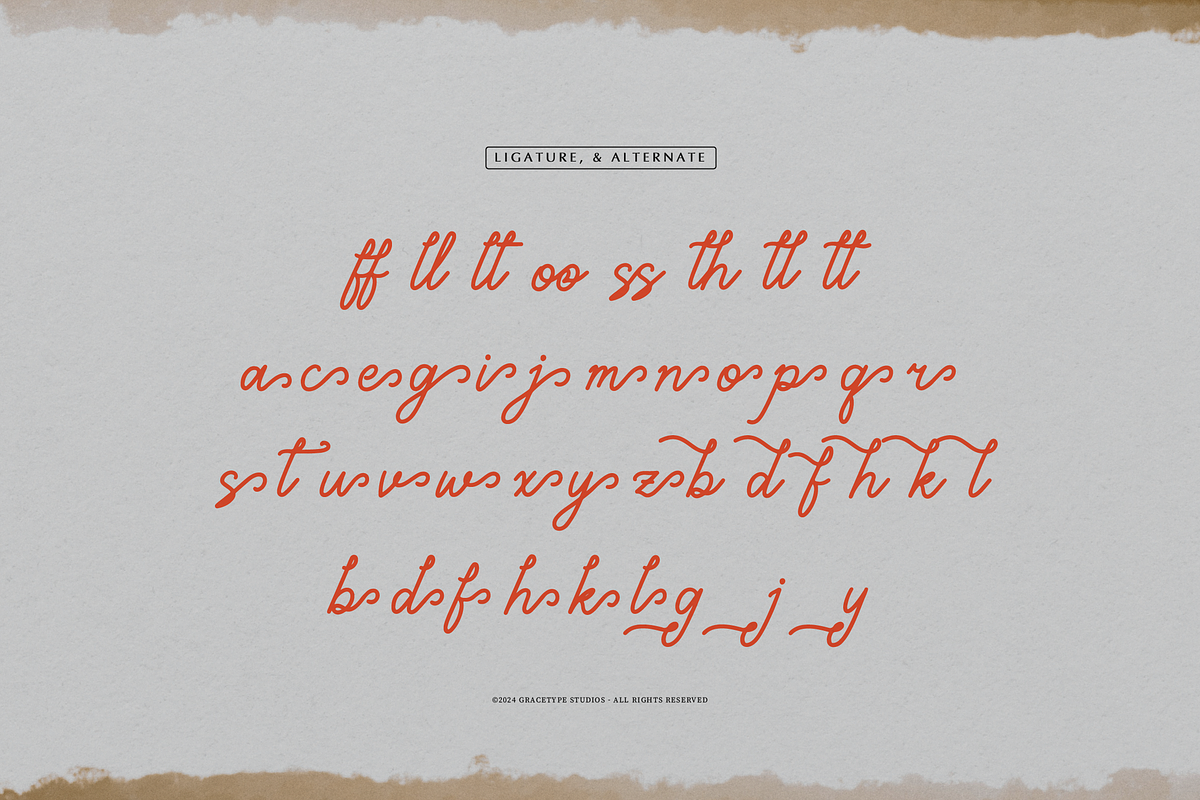 LIGATURE, & ALTERNATE
ff ll lt oo ss th tl tt
a c e g i j m n o p q r
s t u v w x y z b d f h k l
b d f h k l g j y
©2024 GRACETYPE STUDIOS - ALL RIGHTS RESERVED